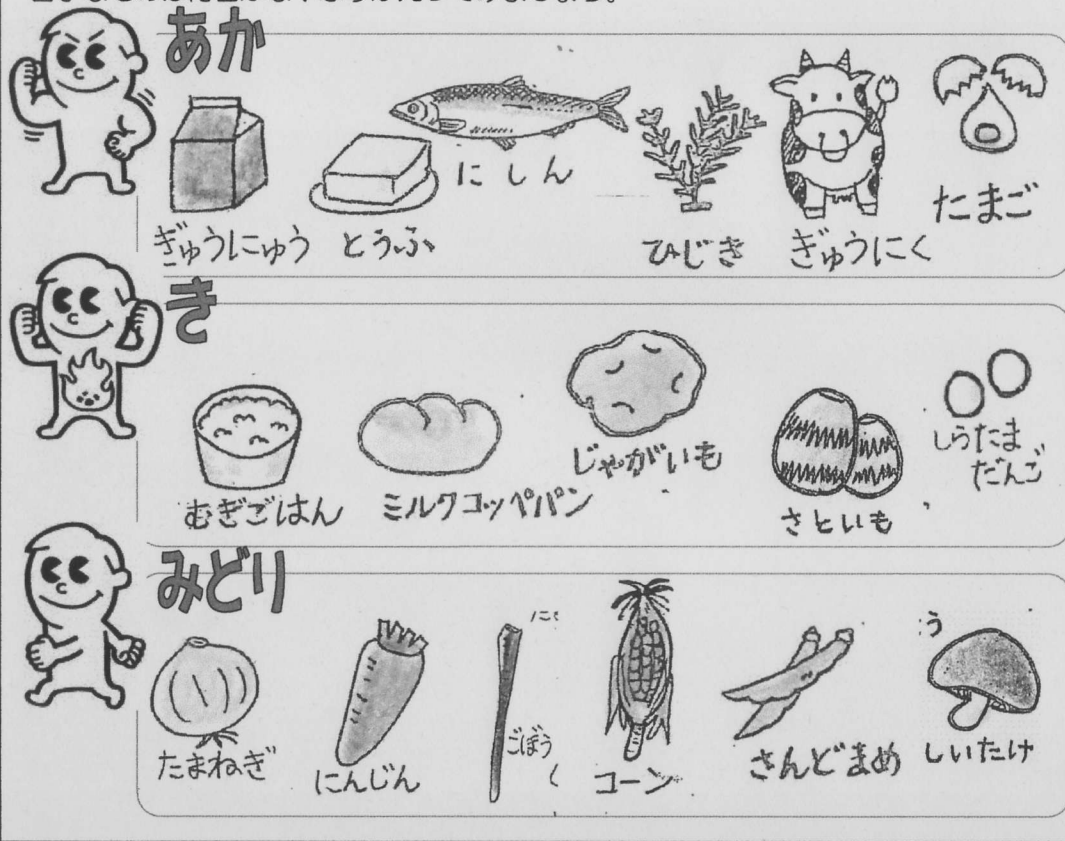 あか
ぎゅうにゅう
とうふ
にしん
ひじき
ぎゅうにく
たまご
き
むぎごはん
ミルクコッペパン
じゃがいも
さといも
しらたま
だんご
みどり
たまねぎ
にんじん
ごぼう
く
コーン
さんどまめ
う
しいたけ